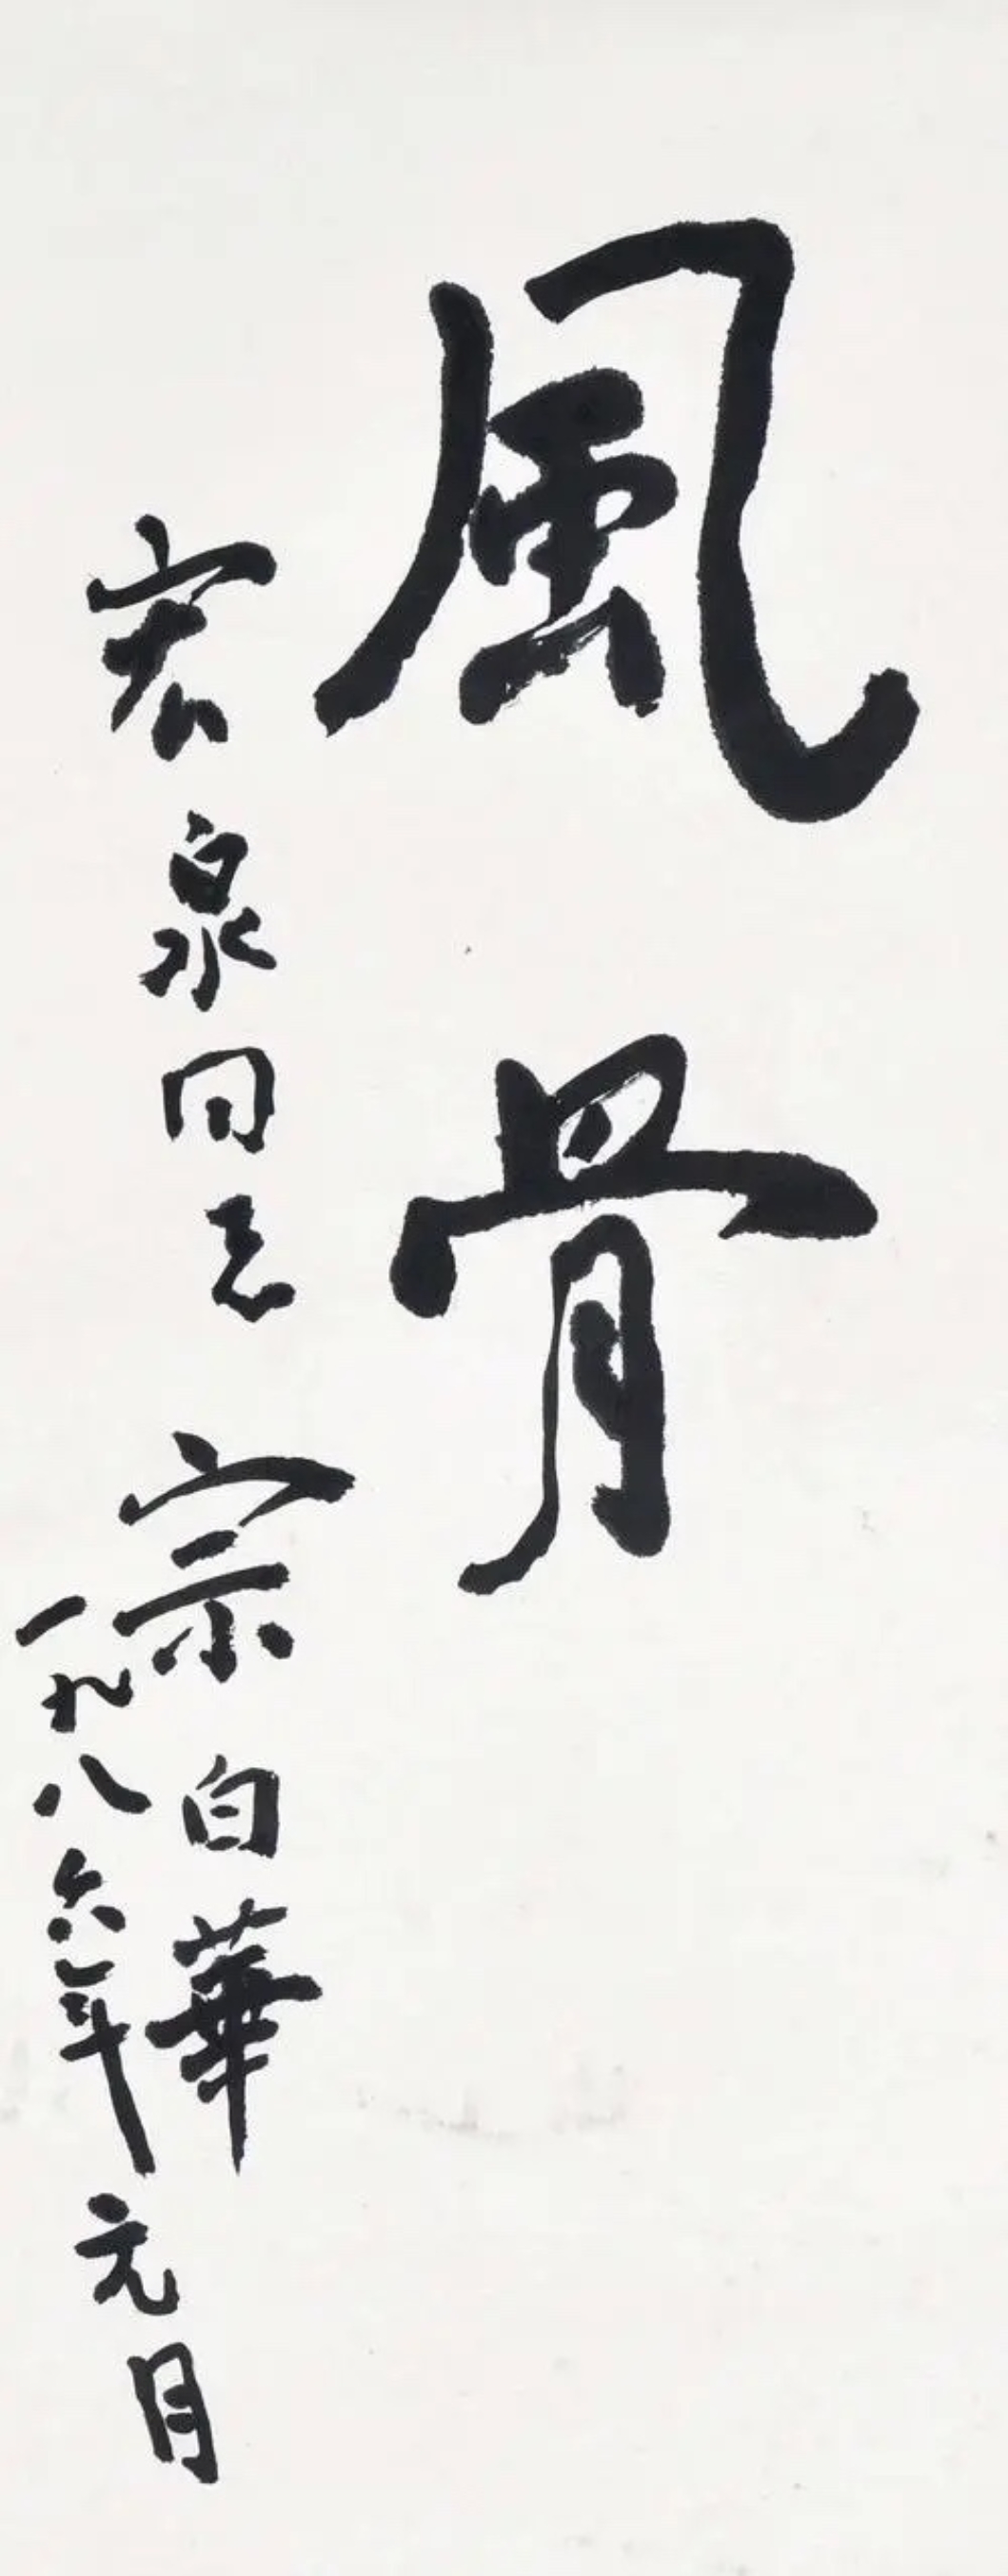 風骨
宏泉同志 宗白華
一九八六年元月